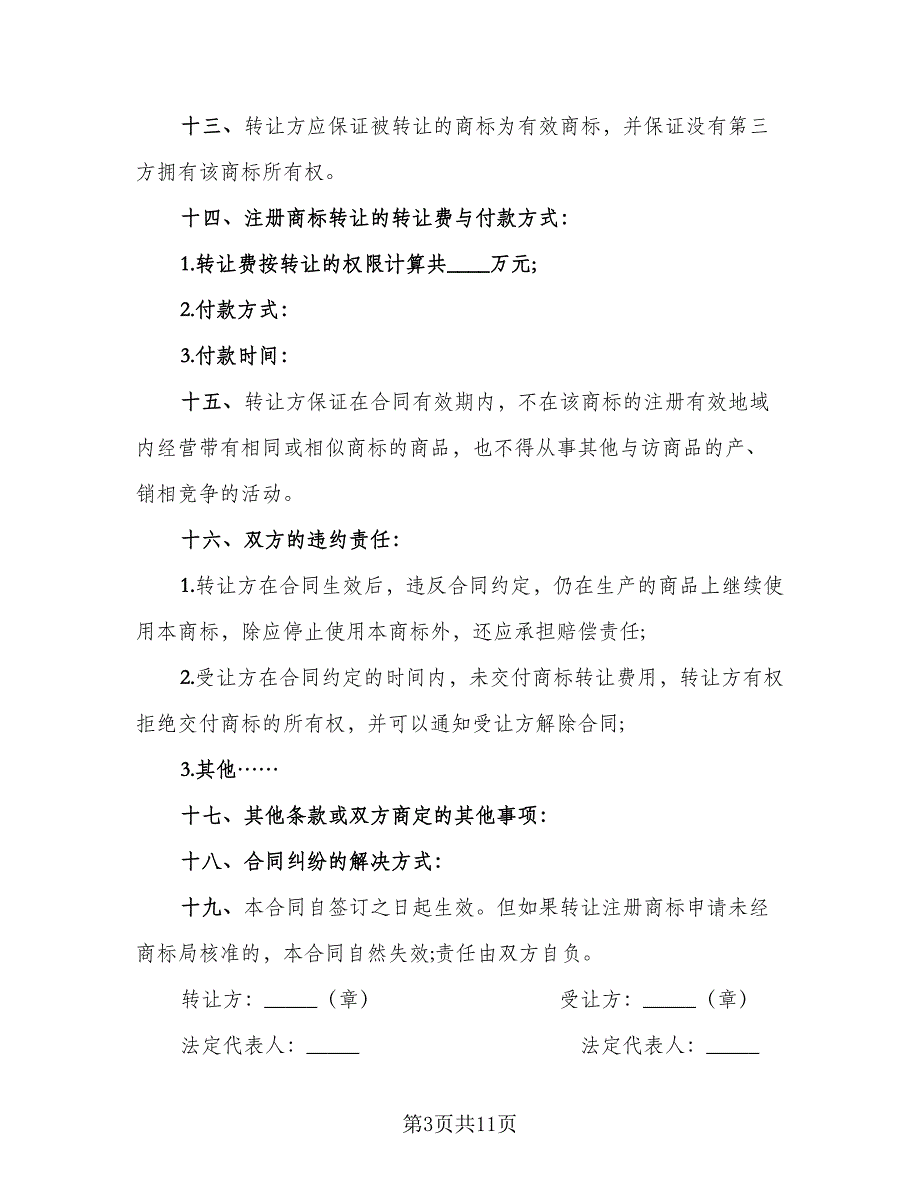 十三、转让方应保证被转让的商标为有效商标，并保证没有第三
方拥有该商标所有权。
十四、注册商标转让的转让费与付款方式：
1.转让费按转让的权限计算共____万元;
2.付款方式：
3.付款时间：
十五、转让方保证在合同有效期内，不在该商标的注册有效地域
内经营带有相同或相似商标的商品，也不得从事其他与访商品的产、
销相竞争的活动。
十六、双方的违约责任：
1.转让方在合同生效后，违反合同约定，仍在生产的商品上继续使
用本商标，除应停止使用本商标外，还应承担赔偿责任;
2.受让方在合同约定的时间内，未交付商标转让费用，转让方有权
拒绝交付商标的所有权，并可以通知受让方解除合同;
3.其他……
十七、其他条款或双方商定的其他事项：
十八、合同纠纷的解决方式：
十九、本合同自签订之日起生效。但如果转让注册商标申请未经
商标局核准的，本合同自然失效;责任由双方自负。
转让方：_____（章） 受让方：_____（章）
法定代表人：_____ 法定代表人：_____
第3页共11页